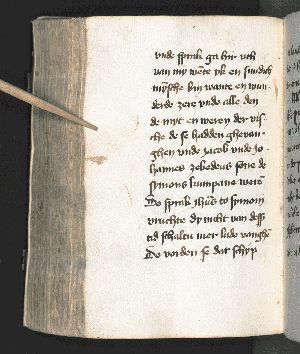 vnde sprak ga hin vth
van my wete yk en sundich
mynsche bin wante en wun
derde zere vnde alle den
de myt en weren der vis
che de se hadden ghevan
ghen vnde Jacob vnde Jo
hannes zebedeus sone de
symons kumpane weren
Do sprak Jhus to symon
vruchte dy nicht van desser
tid schaltu mer lude vanghen
Do vorden se dat schyp